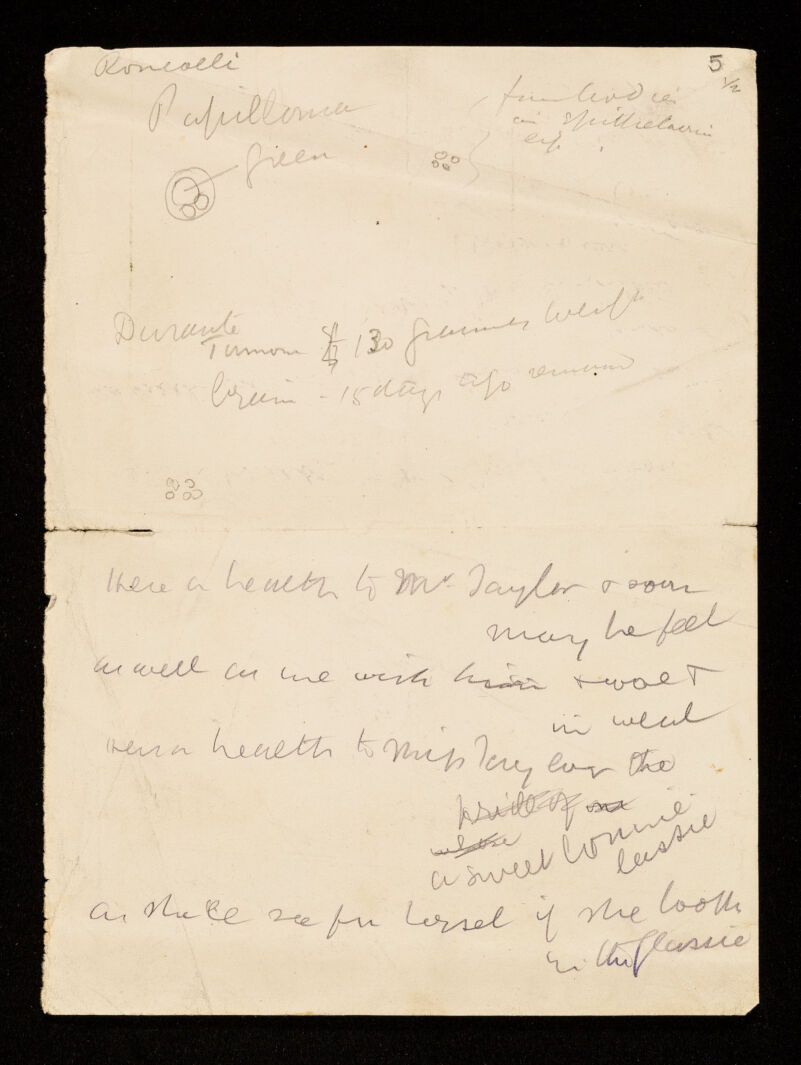 Roncalli
5
1/2
Papilloma
green
in epithelioma
Durante
Tumour 130 grammes weight
brain - 15 days ago removed
Here a health to Mr Taylor & soon
may he feel
as well as we wish him & woe
in weal
a health to Miss Taylor the
pride of
a sweet bonnie
lassie
As she'll see for hersel if she looks
in the glassie